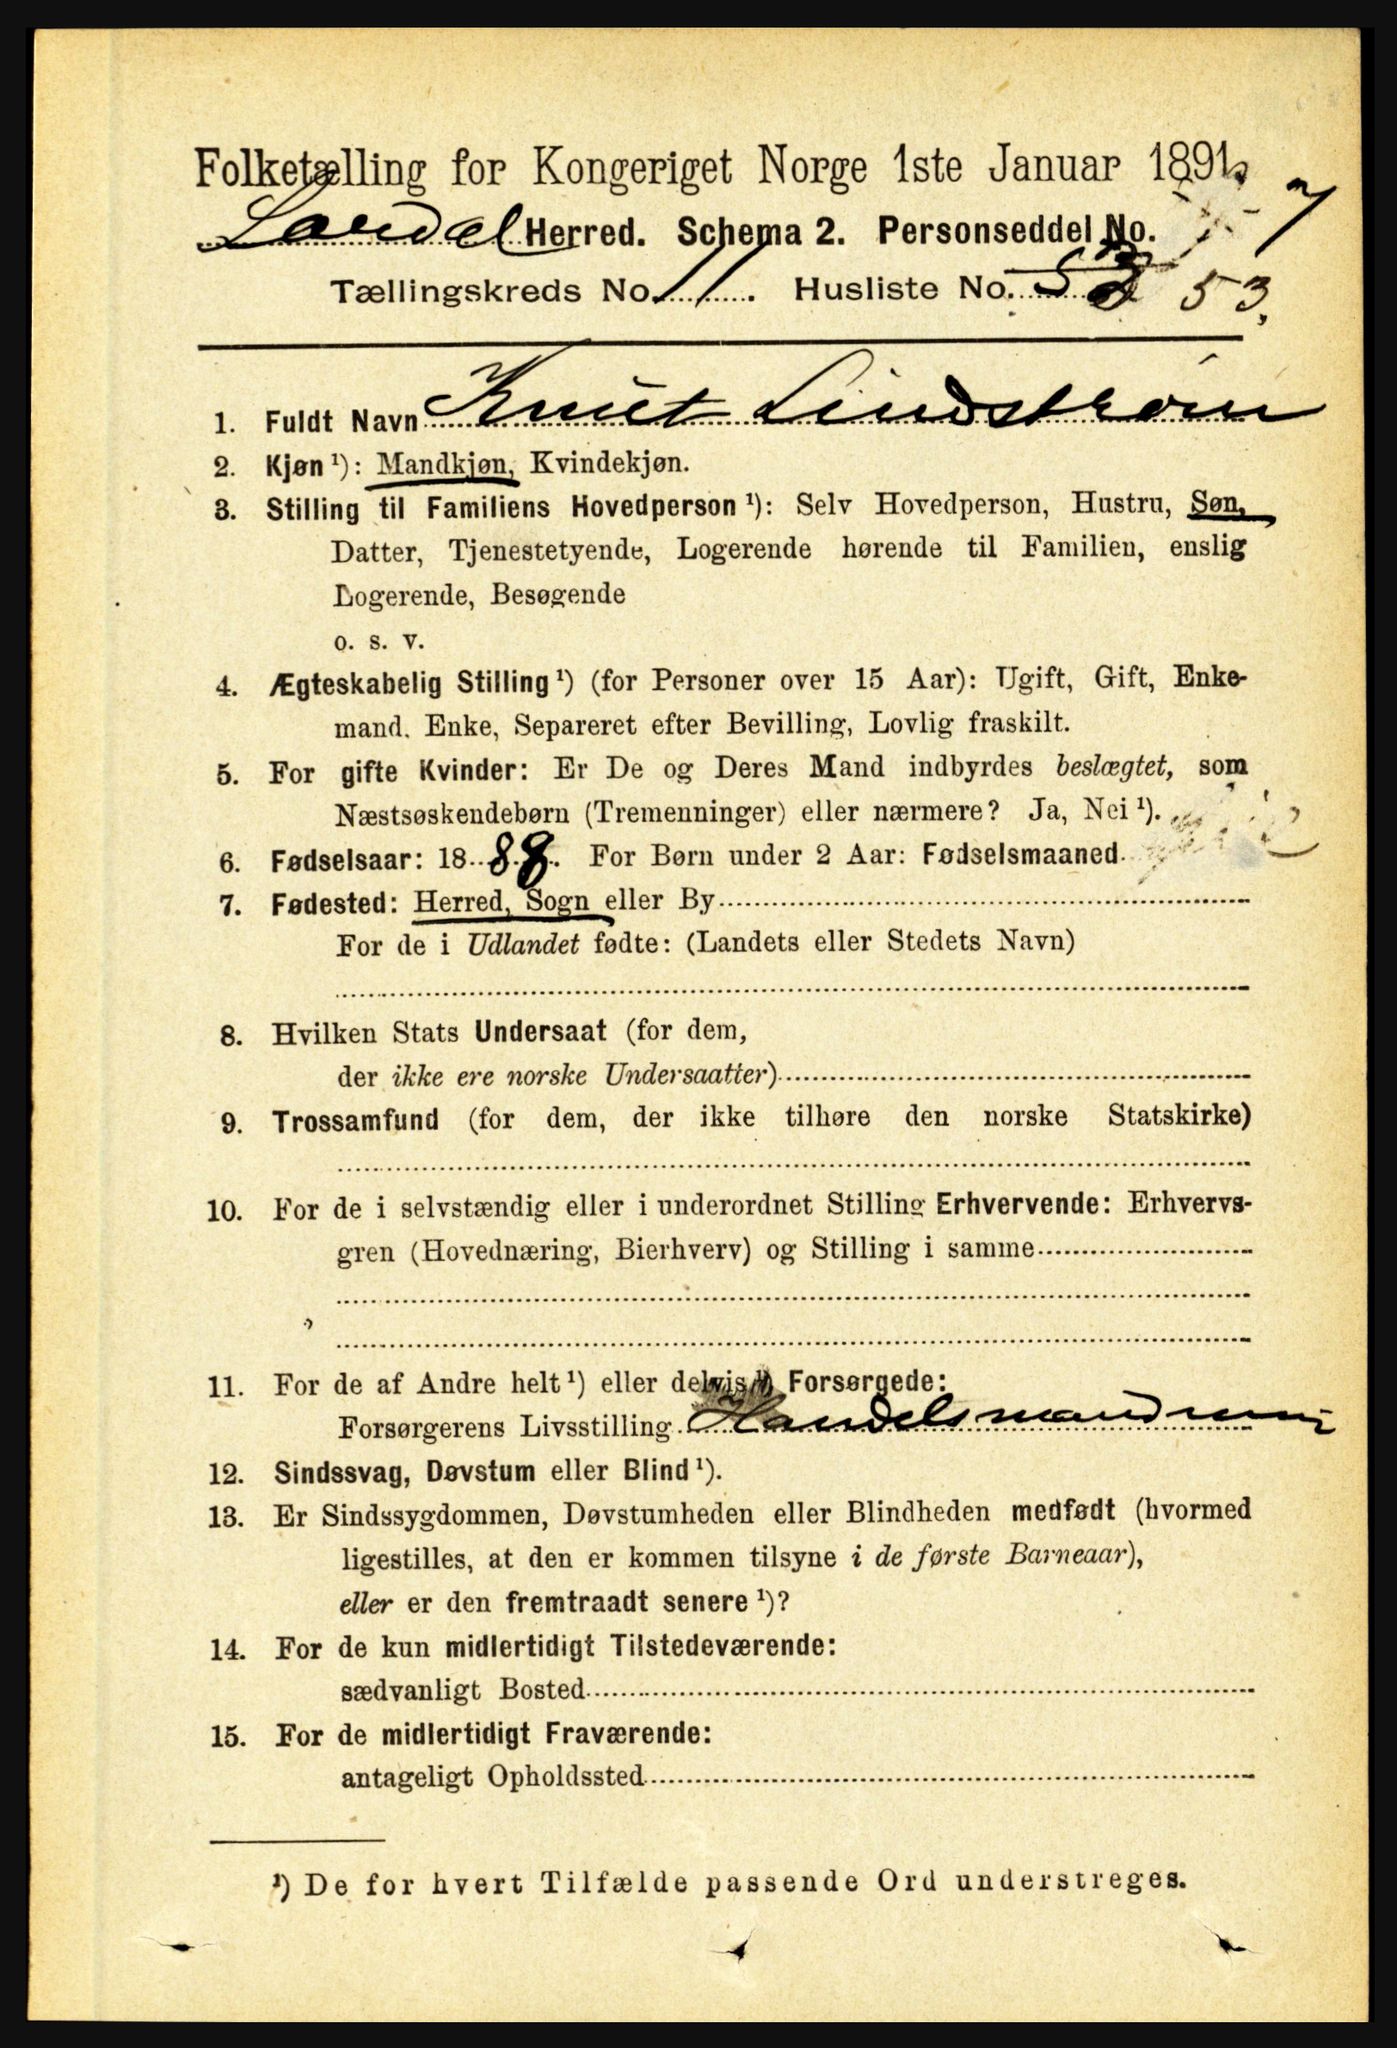 Folketælling for Kongeriget Norge 1ste Januar 1891.
Lærdal Herred. Schema 2. Personseddel No. 7
Tællingskreds No. 11. Husliste No. 53.
1. Fuldt Navn Knut Lindstrøm
2. Kjøn ¹): Mandkjøn, Kvindekjøn.
3. Stilling til Familiens Hovedperson ¹): Selv Hovedperson, Hustru, Søn,
Datter, Tjenestetyende, Logerende hørende til Familien, enslig
Logerende, Besøgende
o. s. v.
4. Ægteskabelig Stilling ¹) (for Personer over 15 Aar): Ugift, Gift, Enke-
mand. Enke, Separeret efter Bevilling, Lovlig fraskilt.
5. For gifte Kvinder: Er De og Deres Mand indbyrdes beslægtet, som
Næstsøskendebørn (Tremenninger) eller nærmere? Ja, Nei ¹).
6. Fødselsaar: 1888. For Børn under 2 Aar: Fødselsmaaned
7. Fødested: Herred, Sogn eller By
For de i Udlandet fødte: (Landets eller Stedets Navn)
8. Hvilken Stats Undersaat (for dem,
der ikke ere norske Undersaatter)
9. Trossamfund (for dem, der ikke tilhøre den norske Statskirke)
10. For de i selvstændig eller i underordnet Stilling Erhvervende: Erhvervs-
gren (Hovednæring, Bierhverv) og Stilling i samme
11. For de af Andre helt ¹) eller delvis ¹) Forsørgede:
Forsørgerens Livsstilling
12. Sindssvag, Døvstum eller Blind ¹).
13. Er Sindssygdommen, Døvstumheden eller Blindheden medfødt (hvormed
ligestilles, at den er kommen tilsyne i de første Barneaar),
eller er den fremtraadt senere ¹)?
14. For de kun midlertidigt Tilstedeværende:
sædvanligt Bosted
15. For de midlertidigt Fraværende:
antageligt Opholdssted
¹) De for hvert Tilfælde passende Ord understreges.